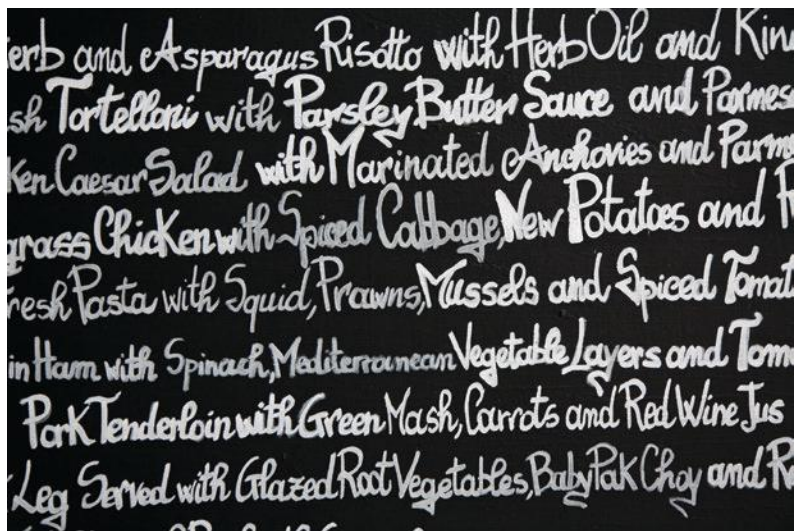 erb and Asparagus Risotto with Herb Oil and Kin
sh Tortelloni with Parsley Butter Sauce and Parmes
ken Caesar Salad with Marinated Anchovies and Parm
grass Chicken with Spiced Cabbage, New Potatoes and
resh Pasta with Squid, Prawns, Mussels and Spiced Tomat
in Ham with Spinach, Mediterranean Vegetable Layers and Tom
Pork Tenderloin with Green Mash, Carrots and Red Wine Jus
Leg Served with Glazed Root Vegetables, Baby Pak Choy and R